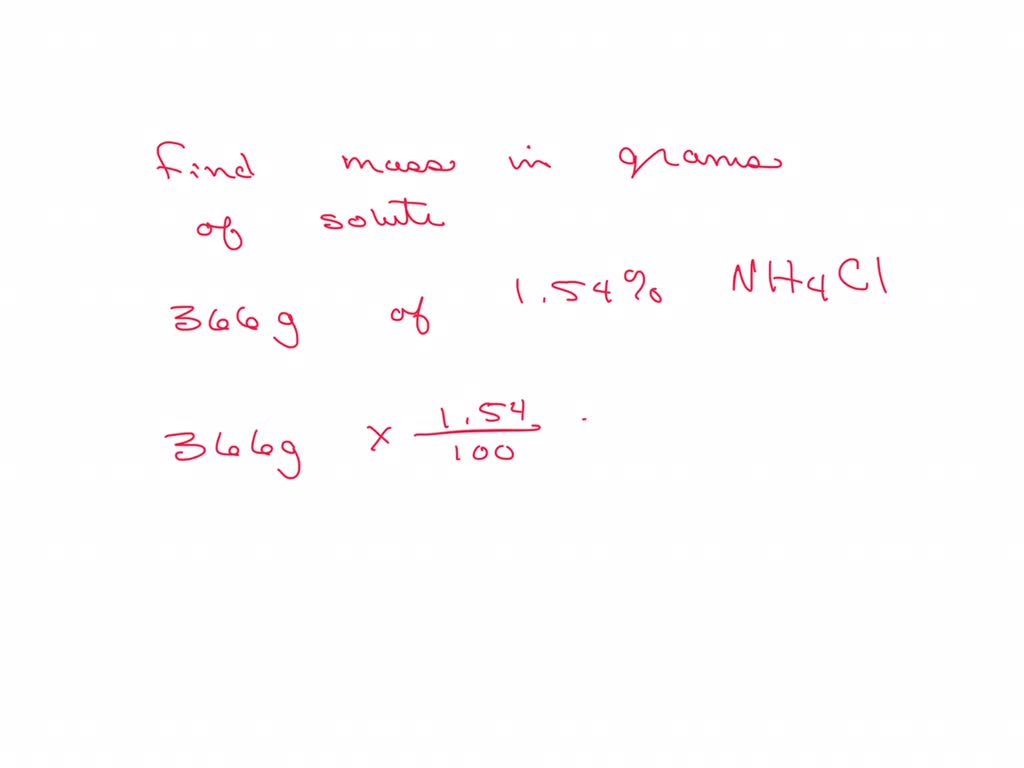 Find mass in grams
of solute
366g of 1.54% NH4Cl
366g x 1.54
100